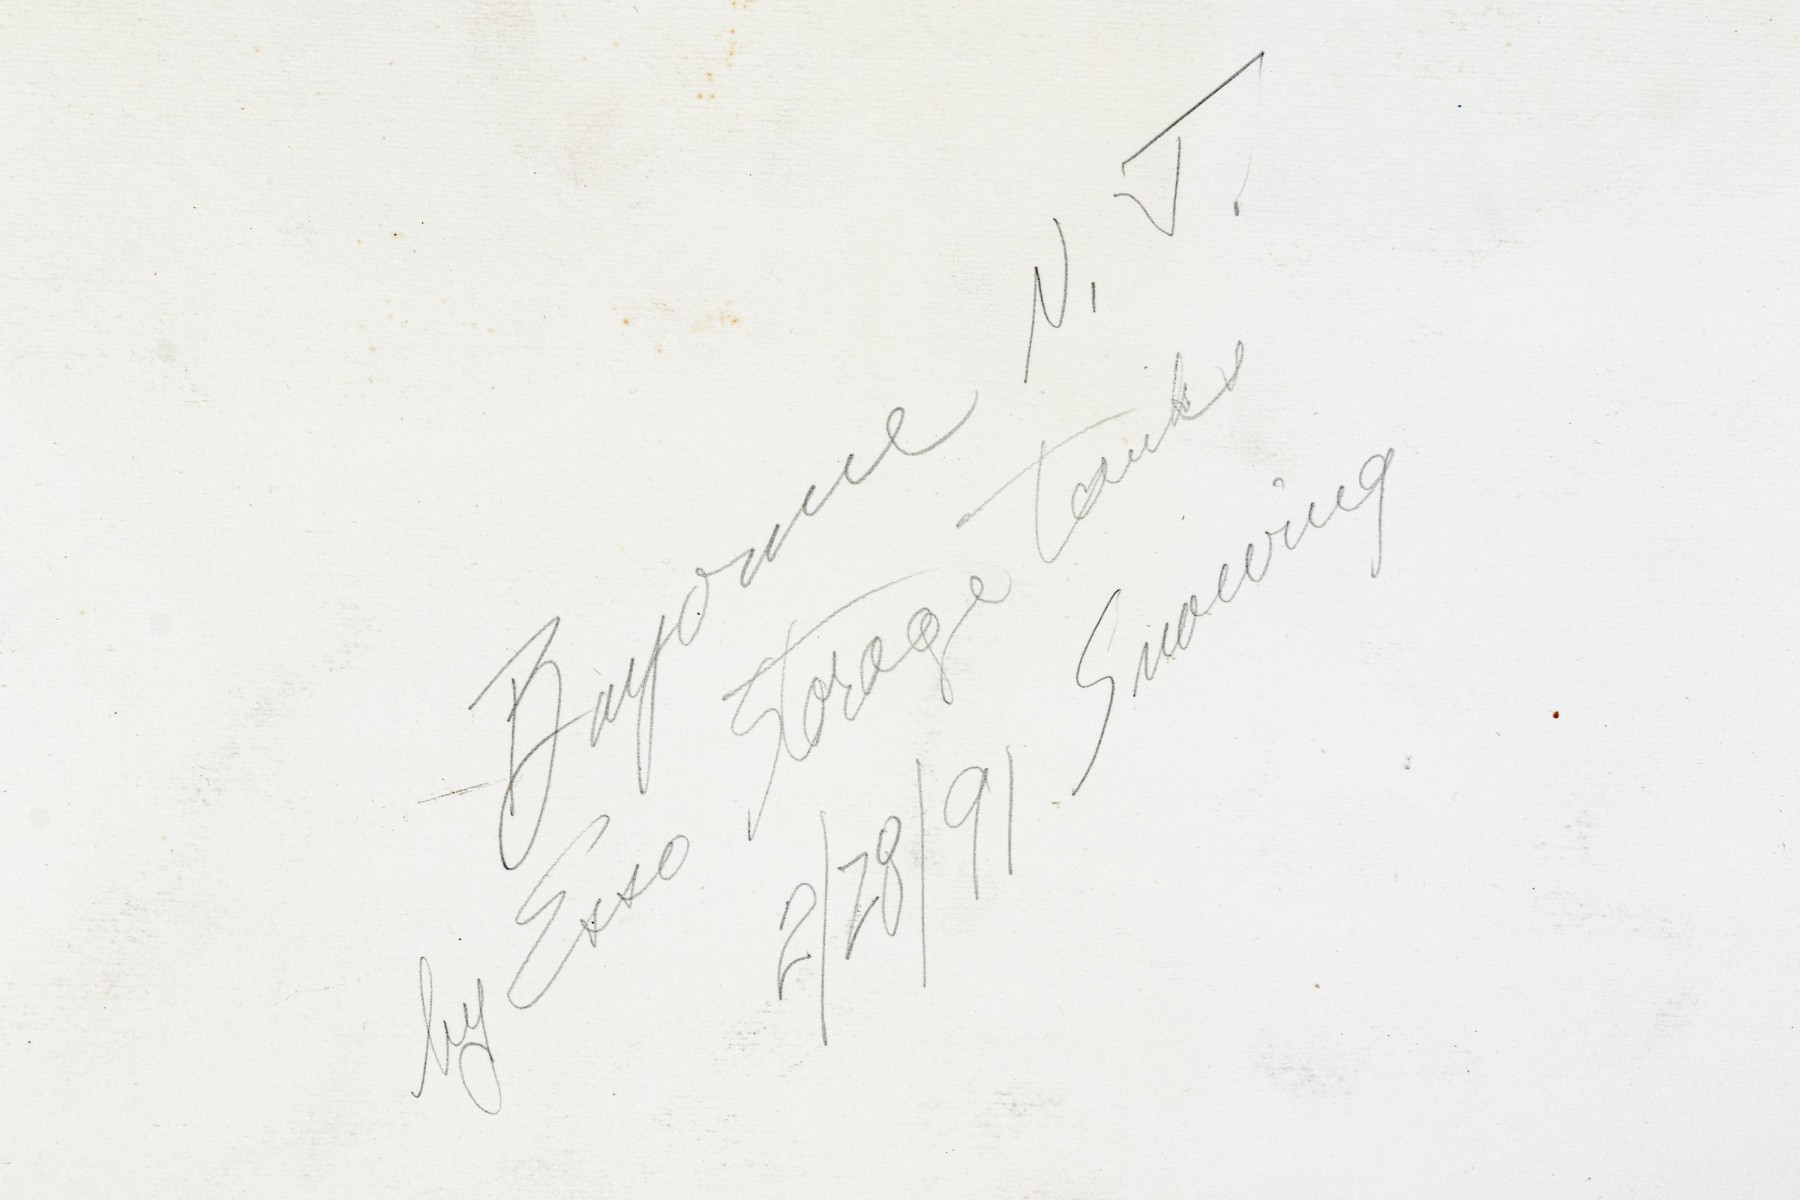 Bayonne N. J.
by Esso Storage tanks
2/28/91 Snowing